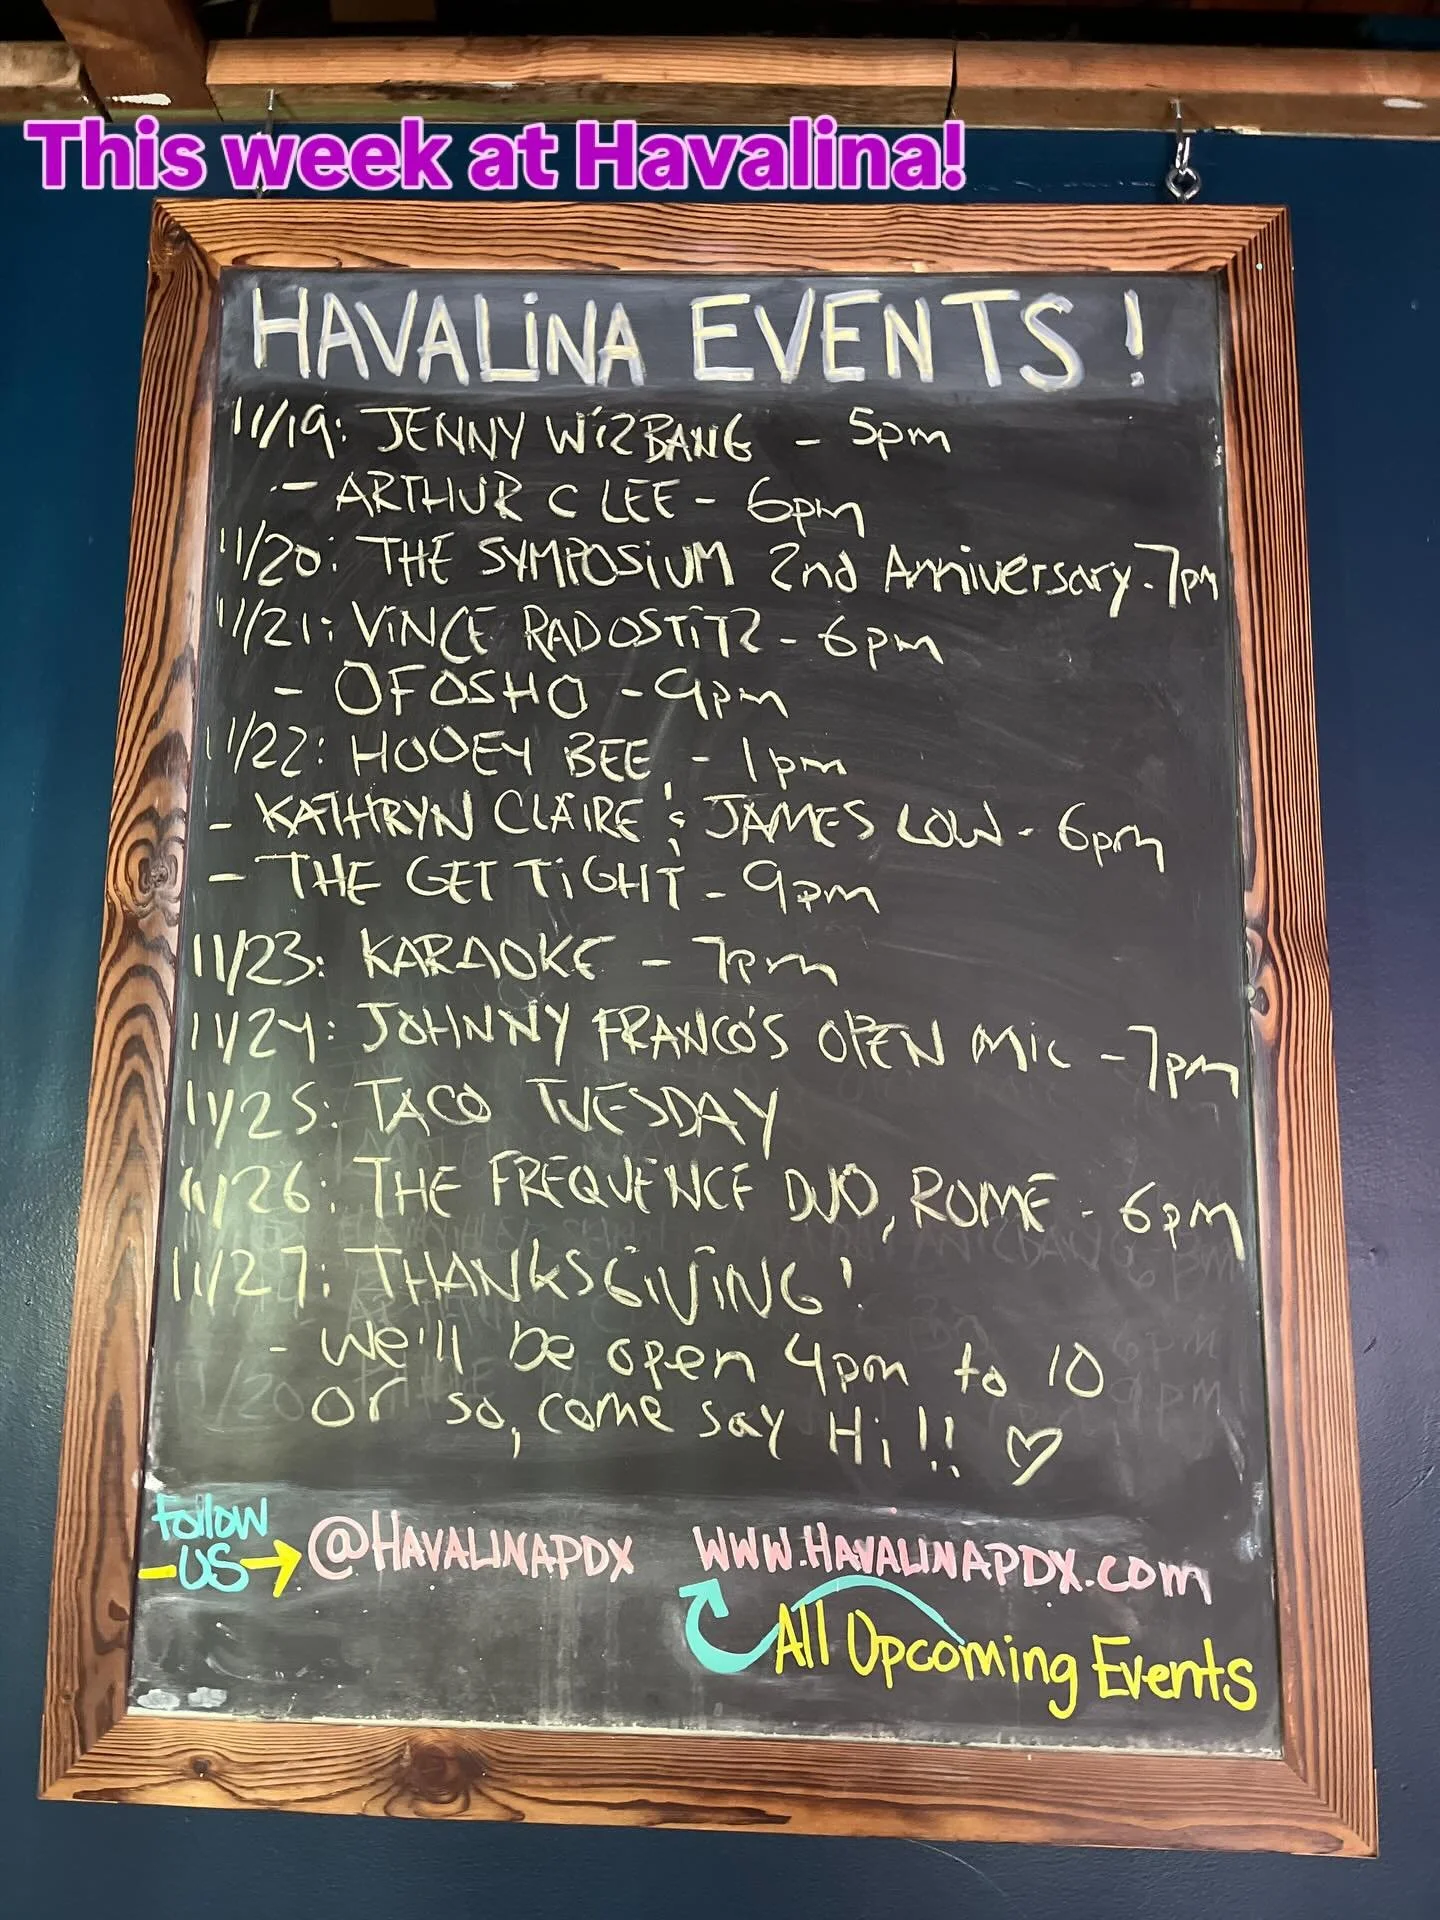 This week at Havalina!
HAVALiNA EVENTS!
11/19: JENNY WiZBANG - 5pm
- ARTHUR C LEE - 6pm
11/20: THE SYMPOSiUM 2nd Anniversary - 7pm
11/21: ViNCE RADOSTiTZ - 6pm
- OFOSHO - 9pm
11/22: HOOEY BEE - 1pm
- KATHRYN CLAIRE & JAMES LOW - 6pm
- THE GET TiGHT - 9pm
11/23: KARAOKE - 7pm
11/24: JOHNNY FRANCO'S OPEN MiC - 7pm
11/25: TACO TUESDAY
11/26: THE FREQUENCE DUO, ROME - 6pm
11/27: THANKSGiViNG!
- We'll be open 4pm to 10
or so, come say Hi!! ♡
Follow
US → @HAVALINAPDX WWW.HAVALINAPDX.com
All Upcoming Events